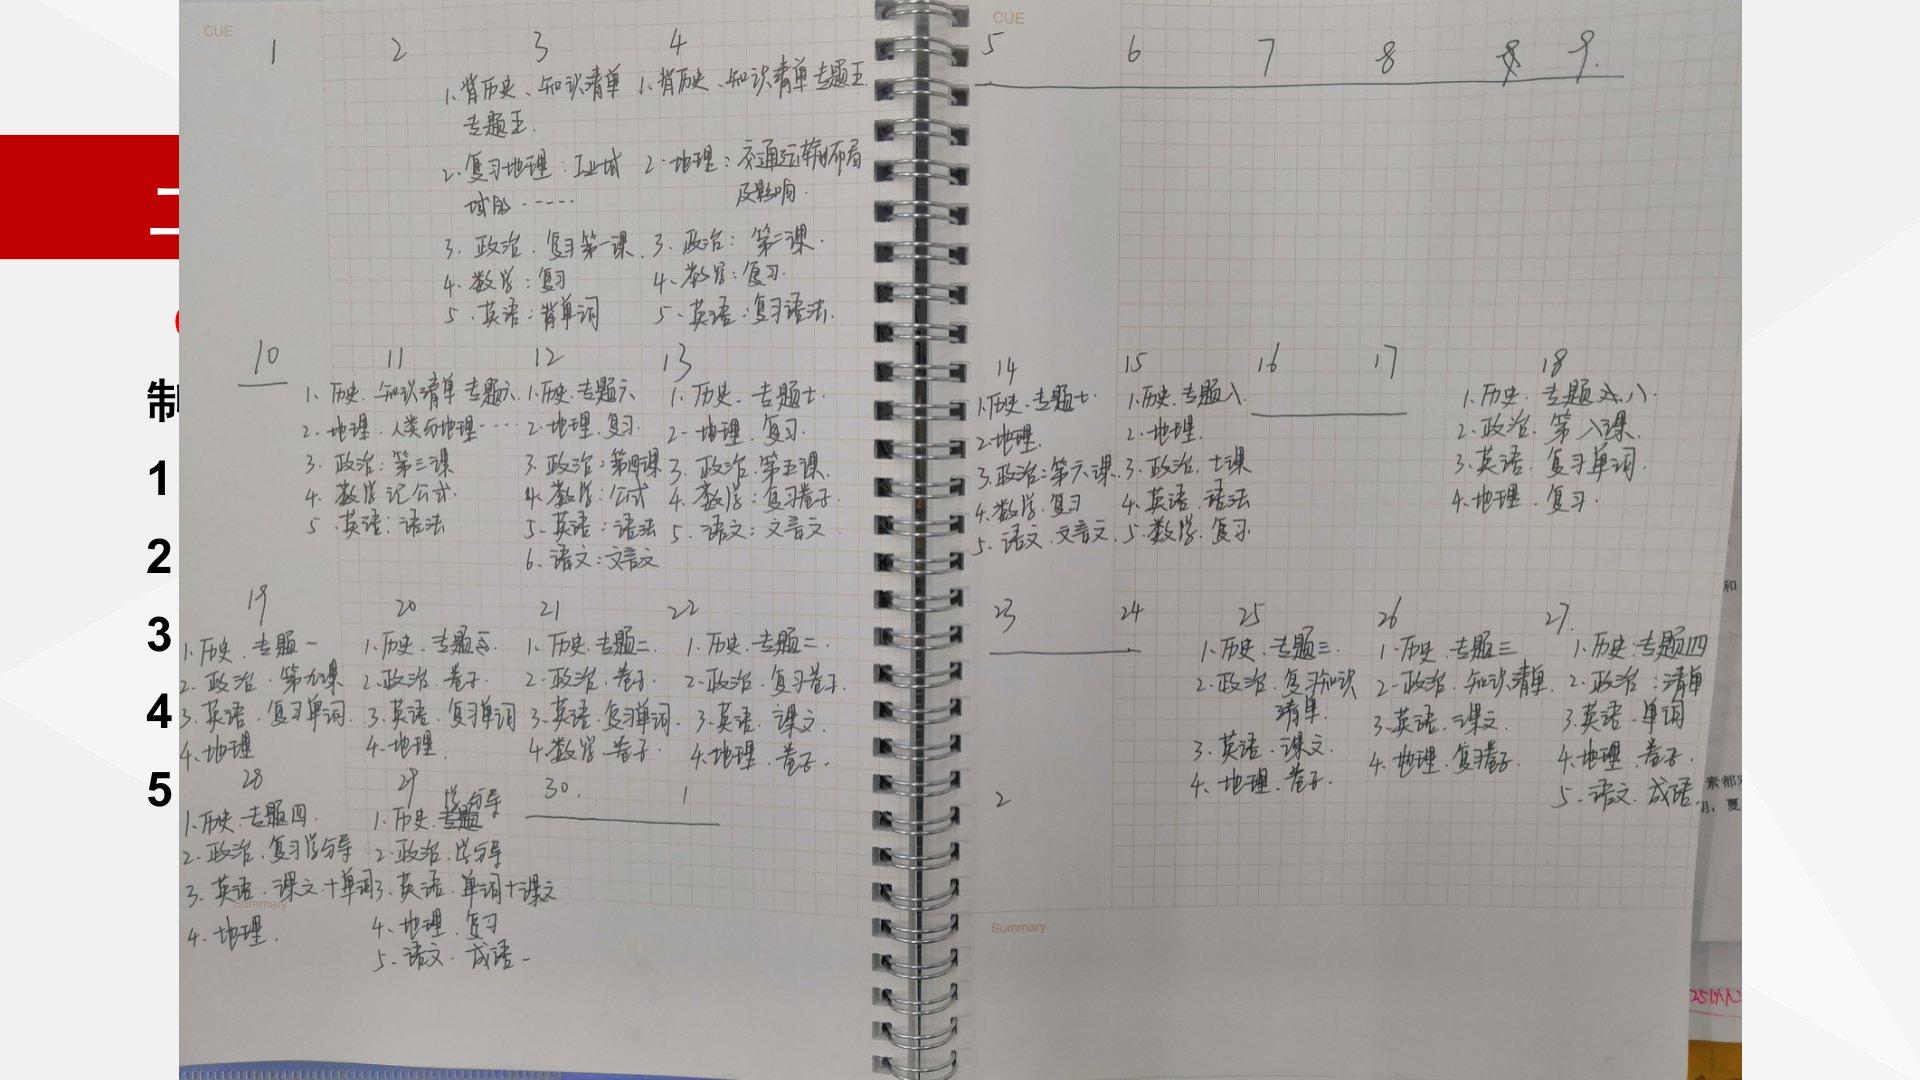 CUE
1 2 3 4
1、背历史、知识清单
专题五.
2、复习地理：工业域
域的……
3、政治、复习第一课.
4、数学：复习
5、英语：背单词
1、背历史、知识清单专题五.
2、地理：交通运输布局
及影响.
3、政治：第二课.
4、数学：复习.
5、英语：复习语法.
10 11 12 13
1、历史、知识清单 专题六.
2、地理、人类与地理……
3、政治：第三课
4、数学 记公式.
5、英语：语法
1、历史、专题六
2、地理、复习.
3、政治：第四课
4、数学：公式
5、英语：语法
6、语文：文言文
1、历史、专题七.
2、地理、复习.
3、政治、第五课.
4、数学：复习卷子.
5、语文：文言文
19 20 21 22
1、历史、专题一
2、政治、第九课
3、英语、复习单词.
4、地理
1、历史、专题
2、政治、卷子.
3、英语、复习单词
4、地理.
1、历史、专题二.
2、政治、卷子.
3、英语、复习单词.
4、数学、卷子.
1、历史、专题二.
2、政治、复习卷子.
3、英语、课文.
4、地理、卷子.
28 29 30. 1
1、历史、专题四.
2、政治、复习学与导
3、英语、课文+单词
Summary
4、地理.
学与导
1、历史、专题
2、政治、学与导
3、英语、单词+课文
4、地理、复习
5、语文、成语
CUE
5 6 7 8 8 9.
14 15 16 17 18
1、历史、专题七.
2、地理.
3、政治：第六课.
4、数学、复习
5、语文、文言文.
1、历史、专题八.
2、地理.
3、政治、七课
4、英语、语法
5、数学、复习.
1、历史、专题八.
2、政治、第八课.
3、英语、复习单词.
4、地理、复习.
23 24 25 26 27.
1、历史、专题三.
2、政治、复习知识
清单.
3、英语、课文.
4、地理、卷子.
1、历史、专题三
2、政治、知识清单.
3、英语、课文.
4、地理、复习卷子.
1、历史：专题四
2、政治：清单
3、英语、单词
4、地理、卷子.
5、语文、成语.
2
Summary
和
素都
制
1
2
3
4
5